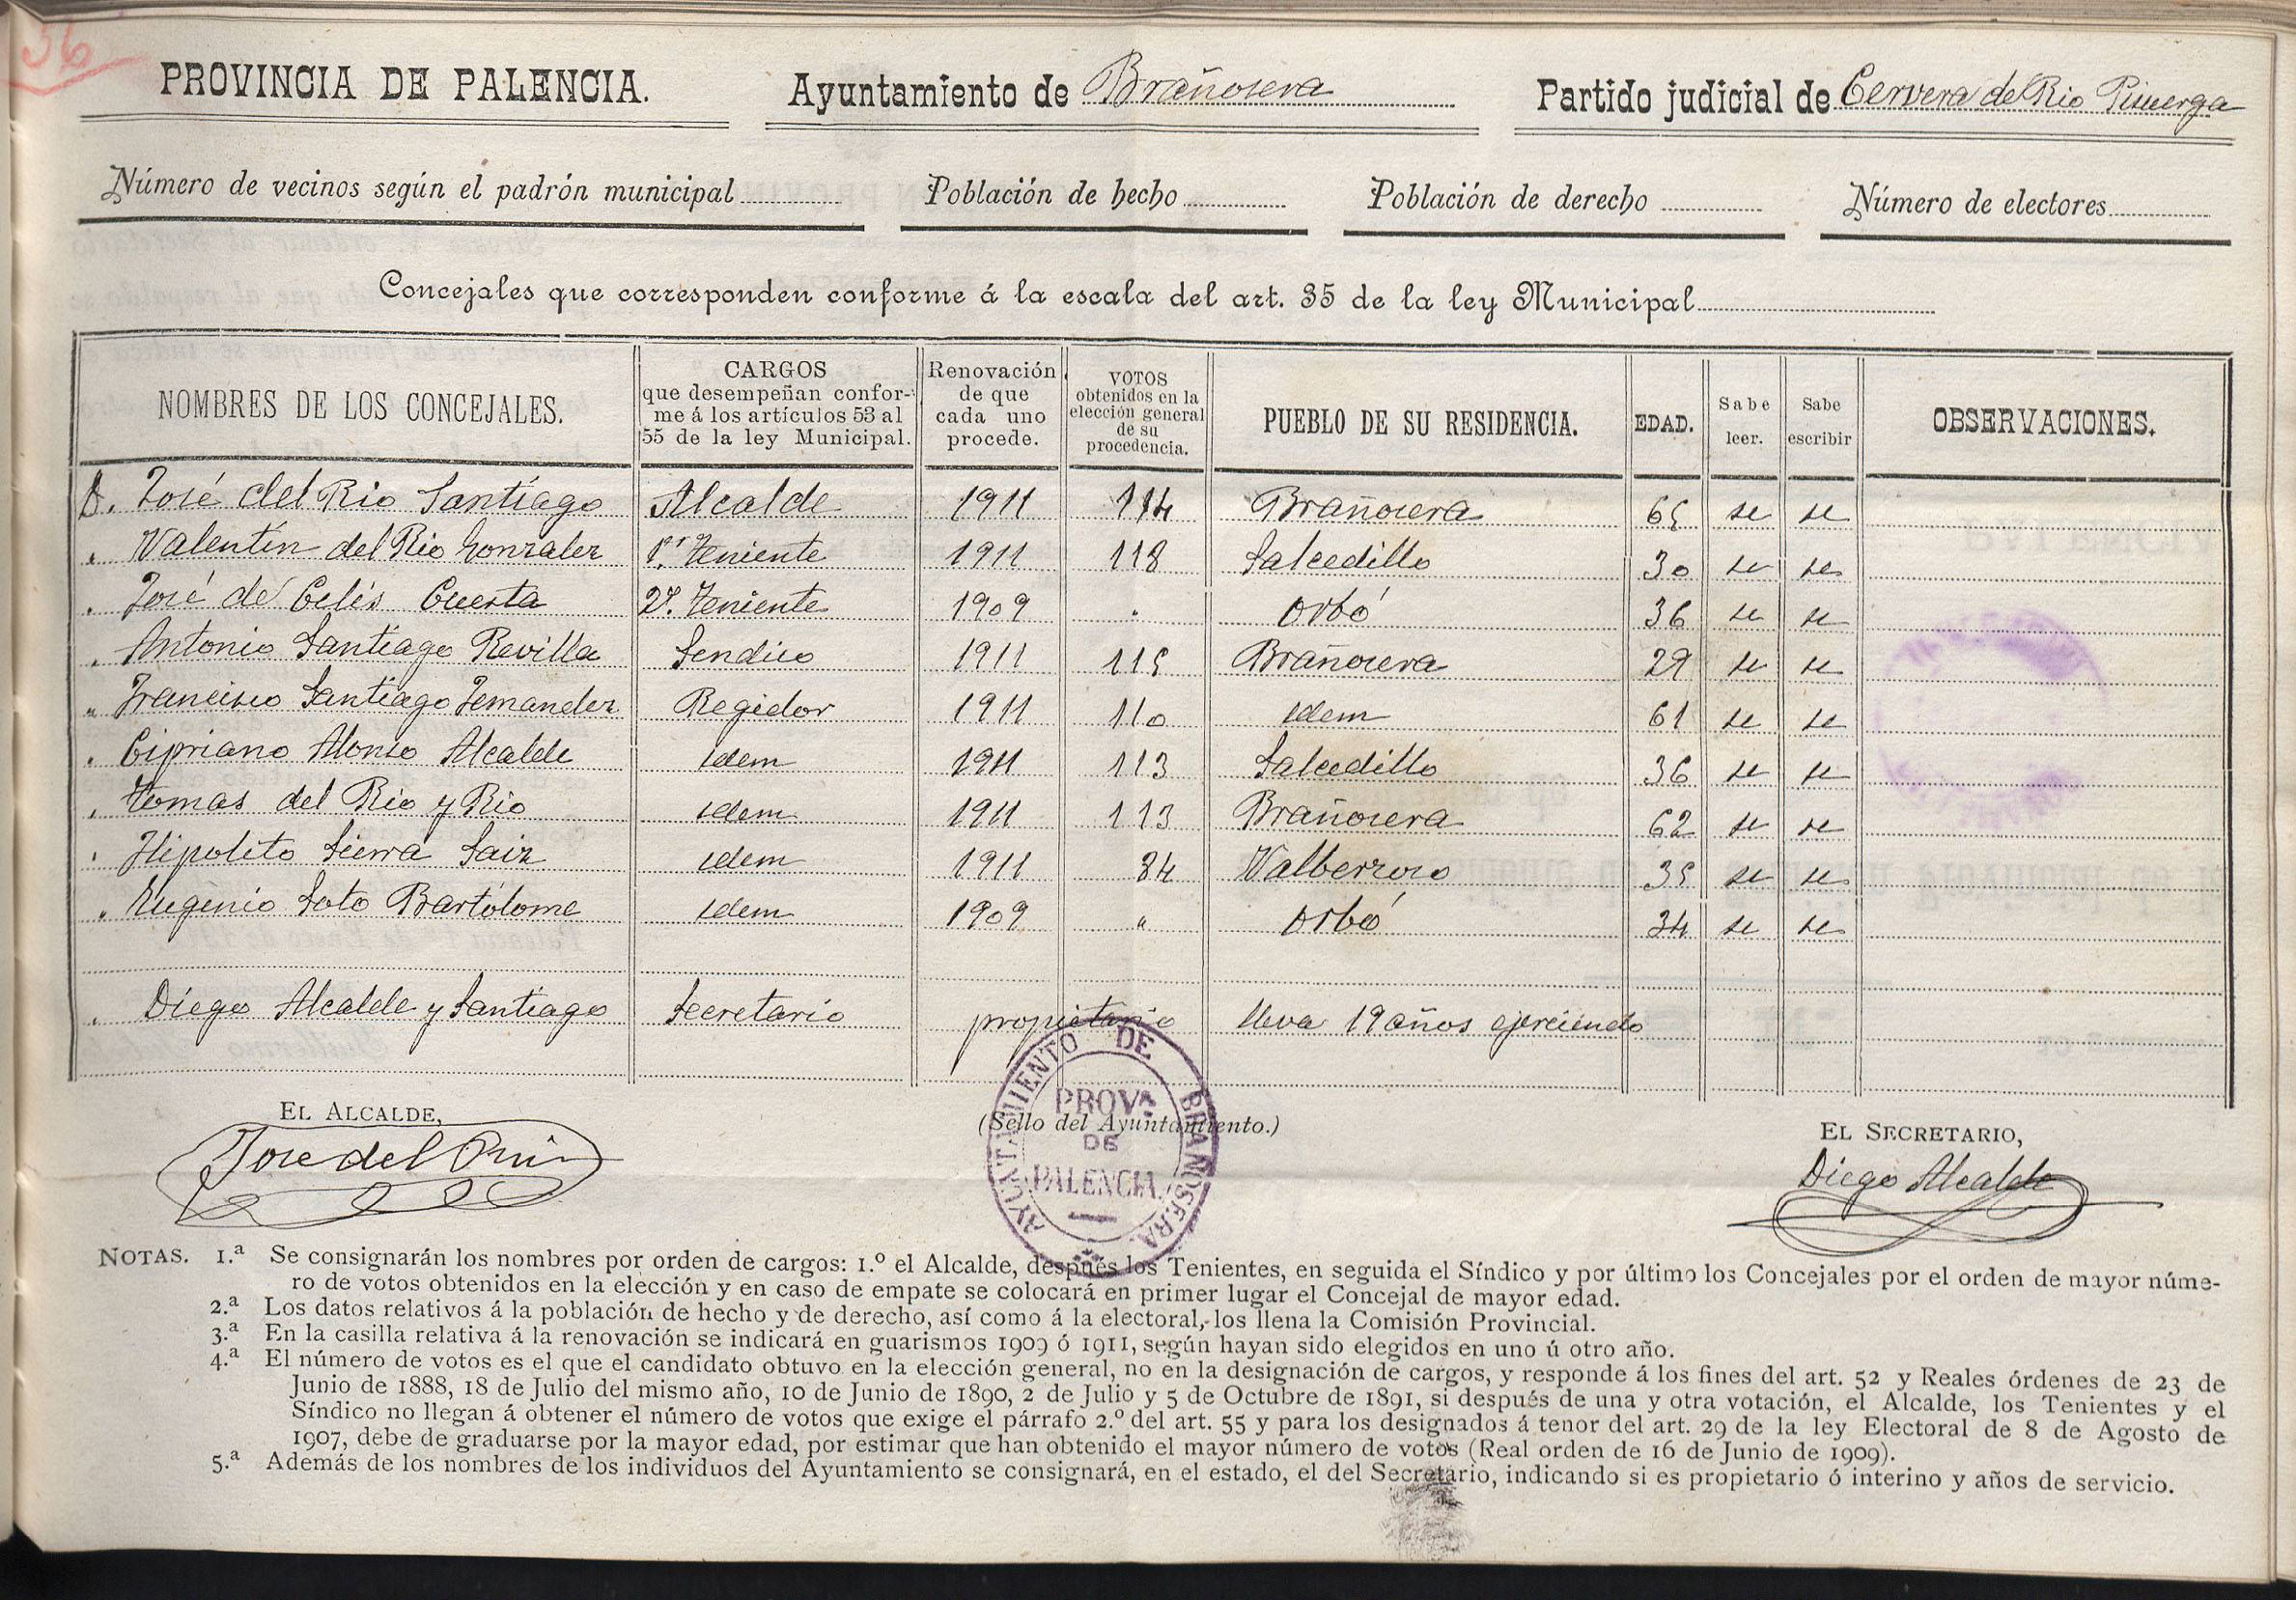 36
PROVINCIA DE PALENCIA. Ayuntamiento de Brañosera Partido judicial de Cervera del Rio Pisuerga
Número de vecinos según el padrón municipal Población de hecho Población de derecho Número de electores
Concejales que corresponden conforme á la escala del art. 35 de la ley Municipal
NOMBRES DE LOS CONCEJALES. CARGOS que desempeñan conforme á los artículos 53 al 55 de la ley Municipal. Renovación de que cada uno procede. VOTOS obtenidos en la elección general de su procedencia. PUEBLO DE SU RESIDENCIA. EDAD. Sabe leer. Sabe escribir OBSERVACIONES.
D. José del Rio Santiago Alcalde 1911 114 Brañosera 65 se se
" Valentín del Rio Gonzalez 1.er Teniente 1911 118 Salcedillo 30 se se
" José de Celis Cuesta 2º. Teniente 1909 " Orbó 36 se se
" Antonio Santiago Revilla Sendico 1911 115 Brañosera 29 se se
" Francisco Santiago Fernandez Regidor 1911 110 idem 61 se se
" Cipriano Alonso Alcalde idem 1911 113 Salcedillo 36 se se
" Tomas del Rio y Rio idem 1911 113 Brañosera 62 se se
" Hipolito Sierra Saiz idem 1911 84 Valberzoso 35 se se
" Eugenio Soto Bartólome idem 1909 " Orbó 34 se se
" Diego Alcalde y Santiago Secretario propietario lleva 19 años ejerciendo
EL ALCALDE, (Sello del Ayuntamiento.) EL SECRETARIO,
Jose del Rio Diego Alcalde
AYUNTAMIENTO DE BRAÑOSERA
PROVA
DE
PALENCIA
NOTAS. 1.ª Se consignarán los nombres por orden de cargos: 1.º el Alcalde, después los Tenientes, en seguida el Síndico y por último los Concejales por el orden de mayor núme-
ro de votos obtenidos en la elección y en caso de empate se colocará en primer lugar el Concejal de mayor edad.
2.ª Los datos relativos á la población de hecho y de derecho, así como á la electoral, los llena la Comisión Provincial.
3.ª En la casilla relativa á la renovación se indicará en guarismos 1909 ó 1911, según hayan sido elegidos en uno ú otro año.
4.ª El número de votos es el que el candidato obtuvo en la elección general, no en la designación de cargos, y responde á los fines del art. 52 y Reales órdenes de 23 de
Junio de 1888, 18 de Julio del mismo año, 10 de Junio de 1890, 2 de Julio y 5 de Octubre de 1891, si después de una y otra votación, el Alcalde, los Tenientes y el
Síndico no llegan á obtener el número de votos que exige el párrafo 2.º del art. 55 y para los designados á tenor del art. 29 de la ley Electoral de 8 de Agosto de
1907, debe de graduarse por la mayor edad, por estimar que han obtenido el mayor número de votos (Real orden de 16 de Junio de 1909).
5.ª Además de los nombres de los individuos del Ayuntamiento se consignará, en el estado, el del Secretario, indicando si es propietario ó interino y años de servicio.